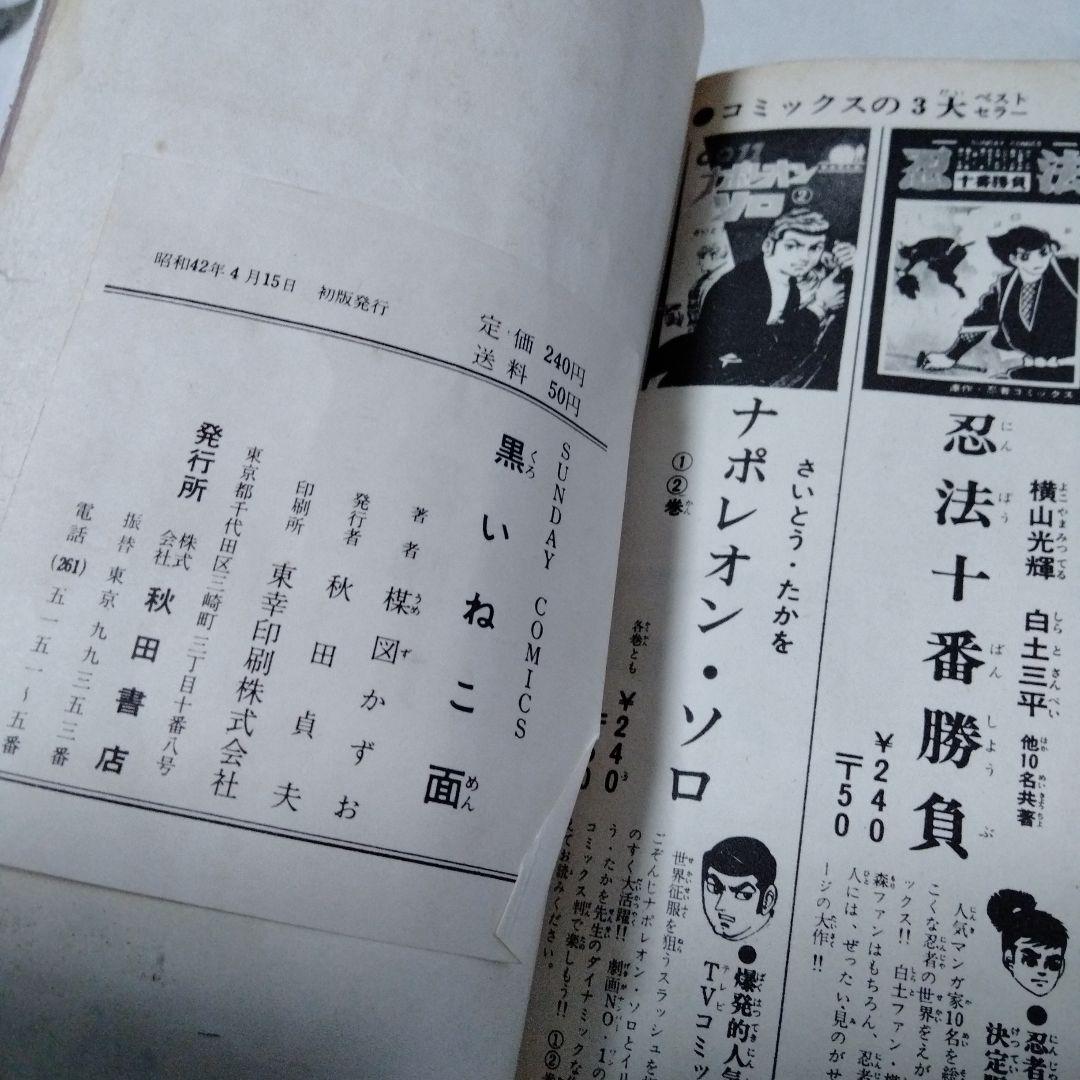 昭和42年4月15日　初版発行
定価 240円
送料 50円
SUNDAY COMICS
黒いねこ面
くろ
めん
著者 楳図かずお
うめず
発行者 秋田貞夫
印刷所 東幸印刷株式会社
東京都千代田区三崎町三丁目十番八号
発行所 株式会社 秋田書店
振替 東京 九九三五三番
電話(261)五一五一~五番
●コミックスの3大ベストセラー
忍法
十番勝負
横山光輝 白土三平 他10名共著
よこやまみつてる しらとさんぺい
忍法十番勝負
にんぽう ばんしょうぶ
¥240
〒50
●忍者
にんじゃ
決定
けってい
人気マンガ家10名を総
こくな忍者の世界をえが
ックス!! 白土ファン・横
森ファンはもちろん、忍者
人には、ぜったい見のがせ
ージの大作!!
ナポレオン
ソロ
②
さいとう・たかを
ナポレオン・ソロ
①②巻
各巻とも
¥240
●爆発的人気
ばくはつてきにん
TVコミッ
テレビ
世界征服を狙うスラッシュを
こぞんじナポレオン・ソロとイル
のすく大活躍!! 劇画NO.1の
う・たかを先生のダイナミックな
コミックス判で楽しもう!! ①②巻
てお読みください。